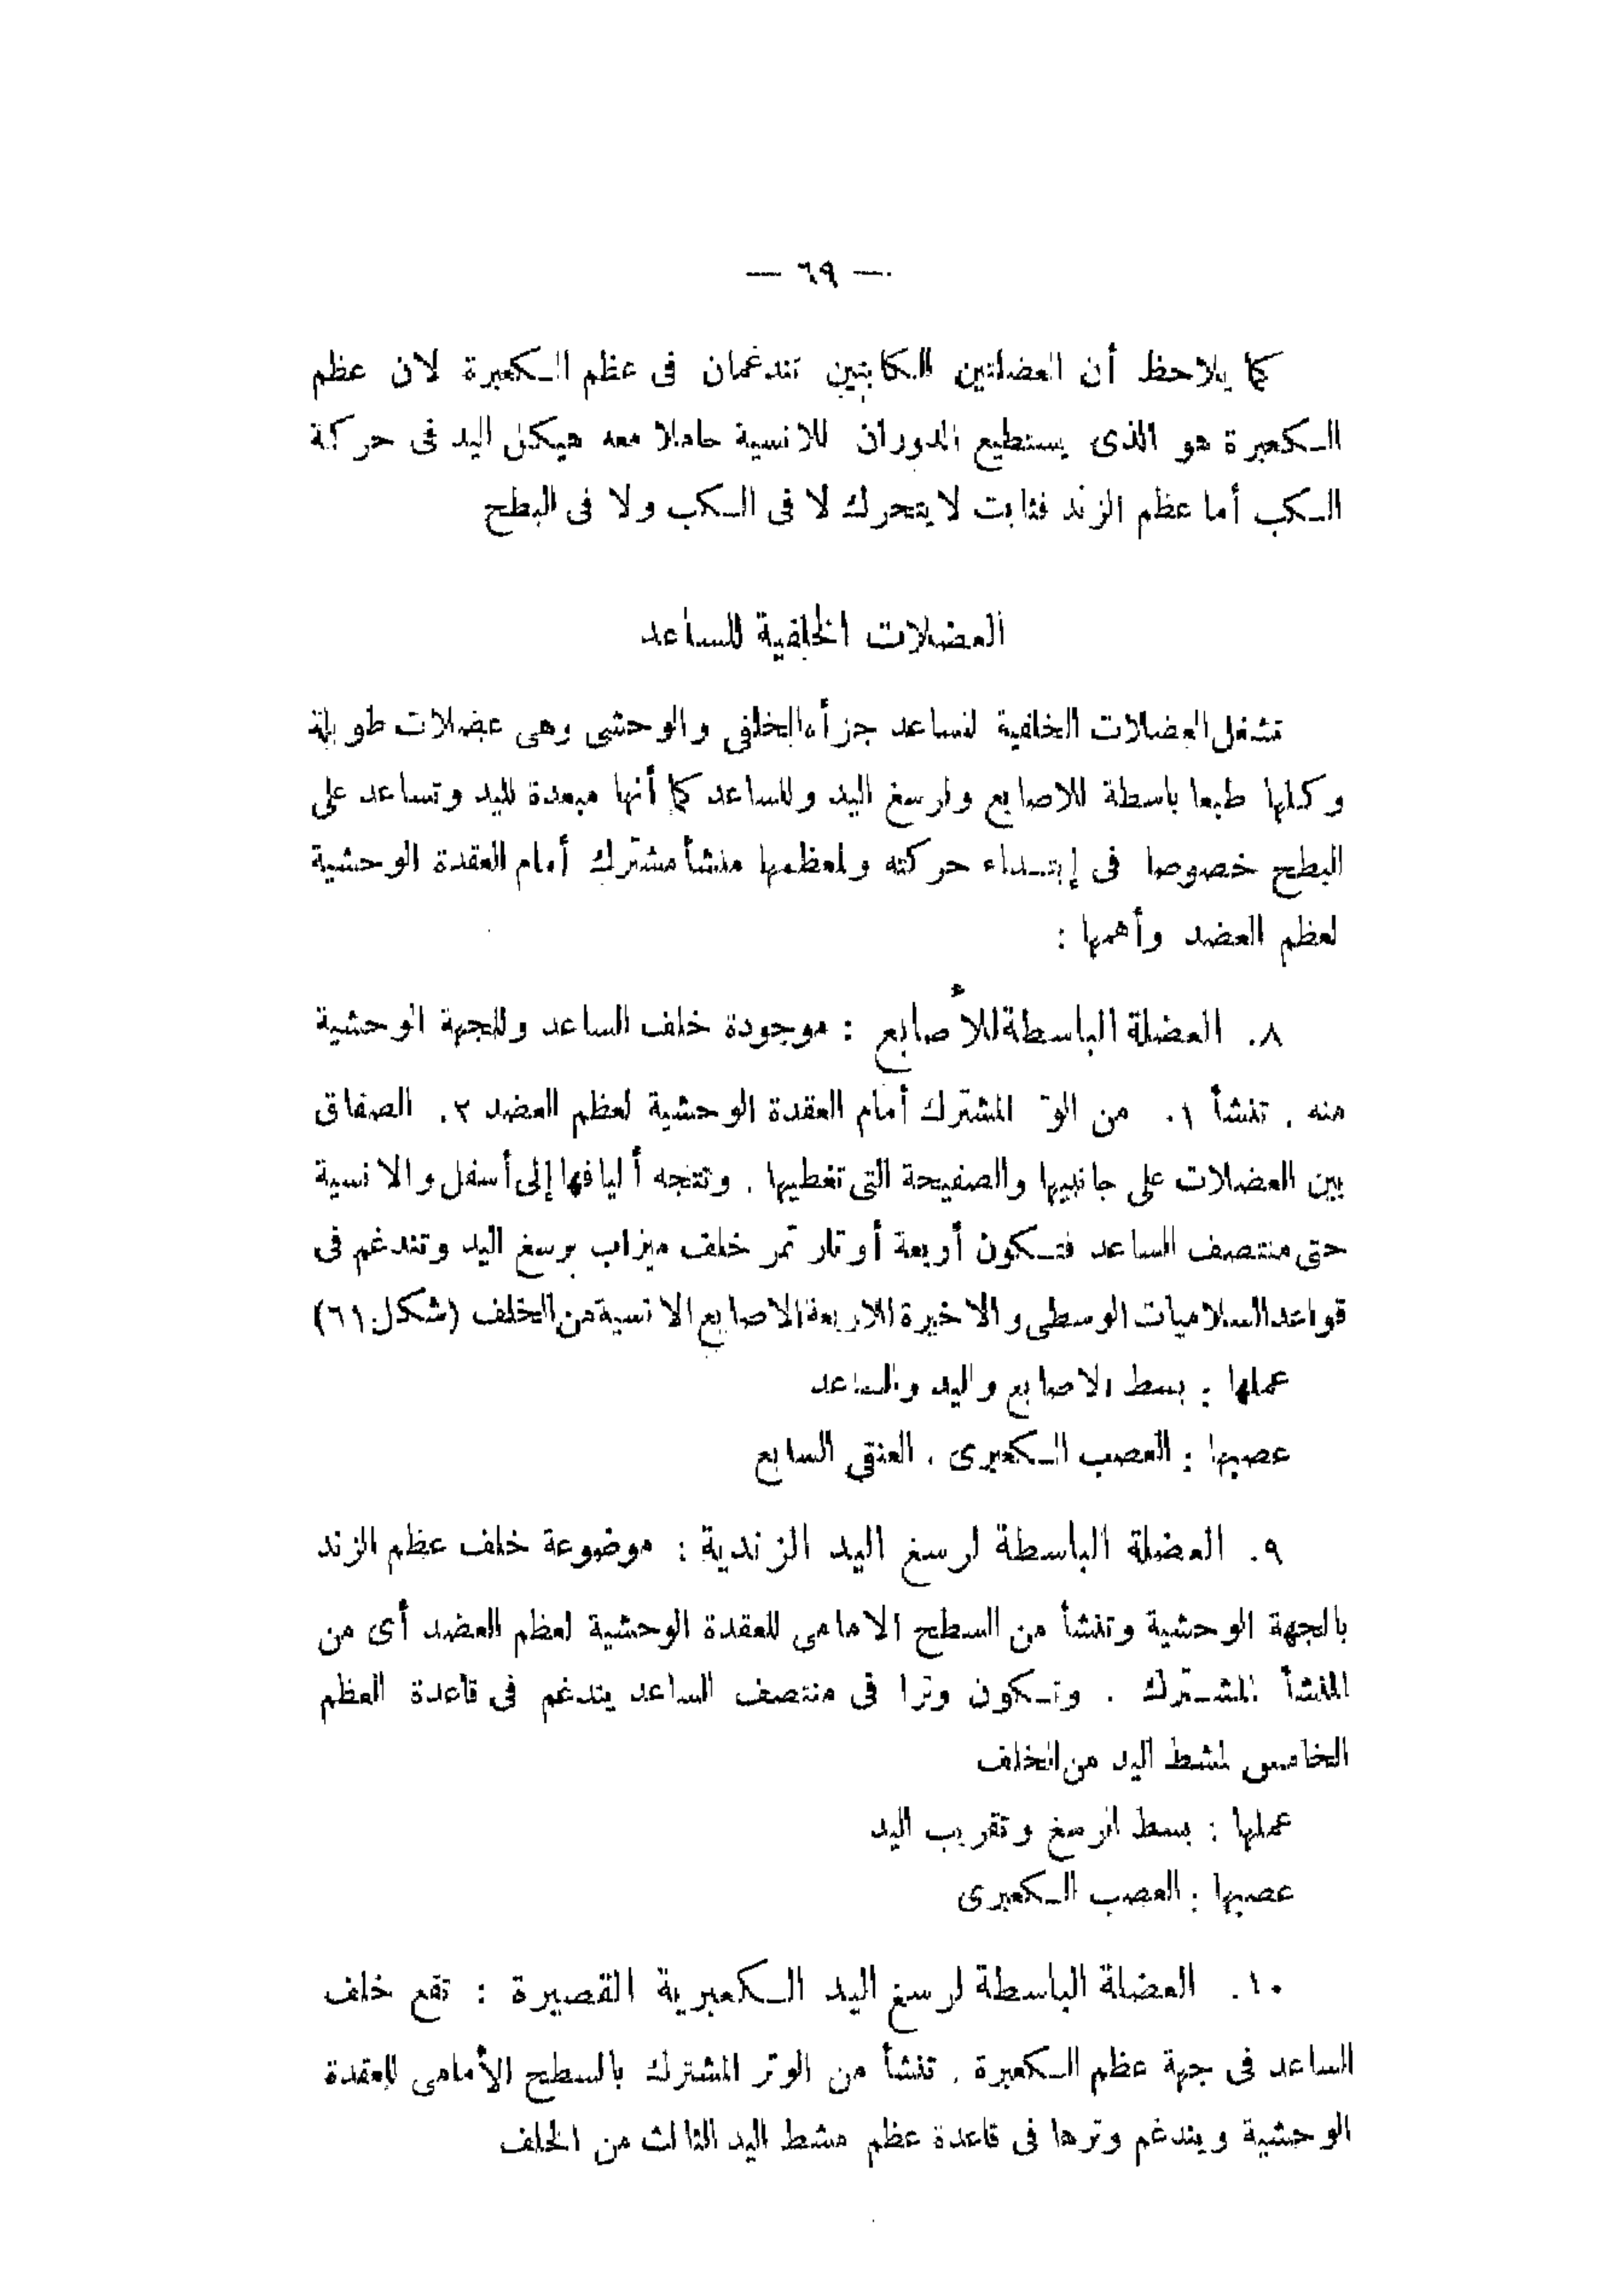 — ٦٩ —
كما يلاحظ أن العضلتين الكابتين تندغمان فى عظم الكعبرة لان عظم
الكعبرة هو الذى يستطيع الدوران للانسية حاملا معه هيكل اليد فى حركة
الكب أما عظم الزند فثابت لا يتحرك لا فى الكب ولا فى البطح
العضلات الخلفية للساعد
تشغل العضلات الخلفية للساعد جزأه الخلفى والوحشى وهى عضلات طويلة
وكلها طبعا باسطة للاصابع ولرسغ اليد وللساعد كما أنها مبعدة لليد وتساعد على
البطح خصوصا فى إبتداء حركته ولمعظمها منشأ مشترك أمام العقدة الوحشية
لعظم العضد وأهمها :
٨. العضلة الباسطة للأصابع : موجودة خلف الساعد وللجهة الوحشية
منه . تنشأ ١. من المشترك أمام العقدة الوحشية لعظم العضد ٢. الصفاق
بين العضلات على جانبيها والصفيحة التى تغطيها . وتتجه أليافها إلى أسفل والانسية
حتى منتصف الساعد فتكون أربعة أوتار تمر خلف ميزاب برسغ اليد وتندغم فى
قواعد السلاميات الوسطى والاخيرة للاربعة الاصابع الانسية من الخلف (شكل ٦١)
عملها : بسط الاصابع واليد والساعد
عصبها : العصب الكعبرى . العنقى السابع
٩. العضلة الباسطة لرسغ اليد الزندية : موضوعة خلف عظم الزند
بالجهة الوحشية وتنشأ من السطح الامامى للعقدة الوحشية لعظم العضد أى من
المنشأ المشترك . وتكون وترا فى منتصف الساعد يندغم فى قاعدة العظم
الخامس لمشط اليد من الخلف
عملها : بسط الرسغ وتقريب اليد
عصبها : العصب الكعبرى
١٠. العضلة الباسطة لرسغ اليد الكعبرية القصيرة : تقع خلف
الساعد فى جهة عظم الكعبرة . تنشأ من الوتر المشترك بالسطح الأمامى للعقدة
الوحشية ويندغم وترها فى قاعدة عظم مشط اليد الثالث من الخلف